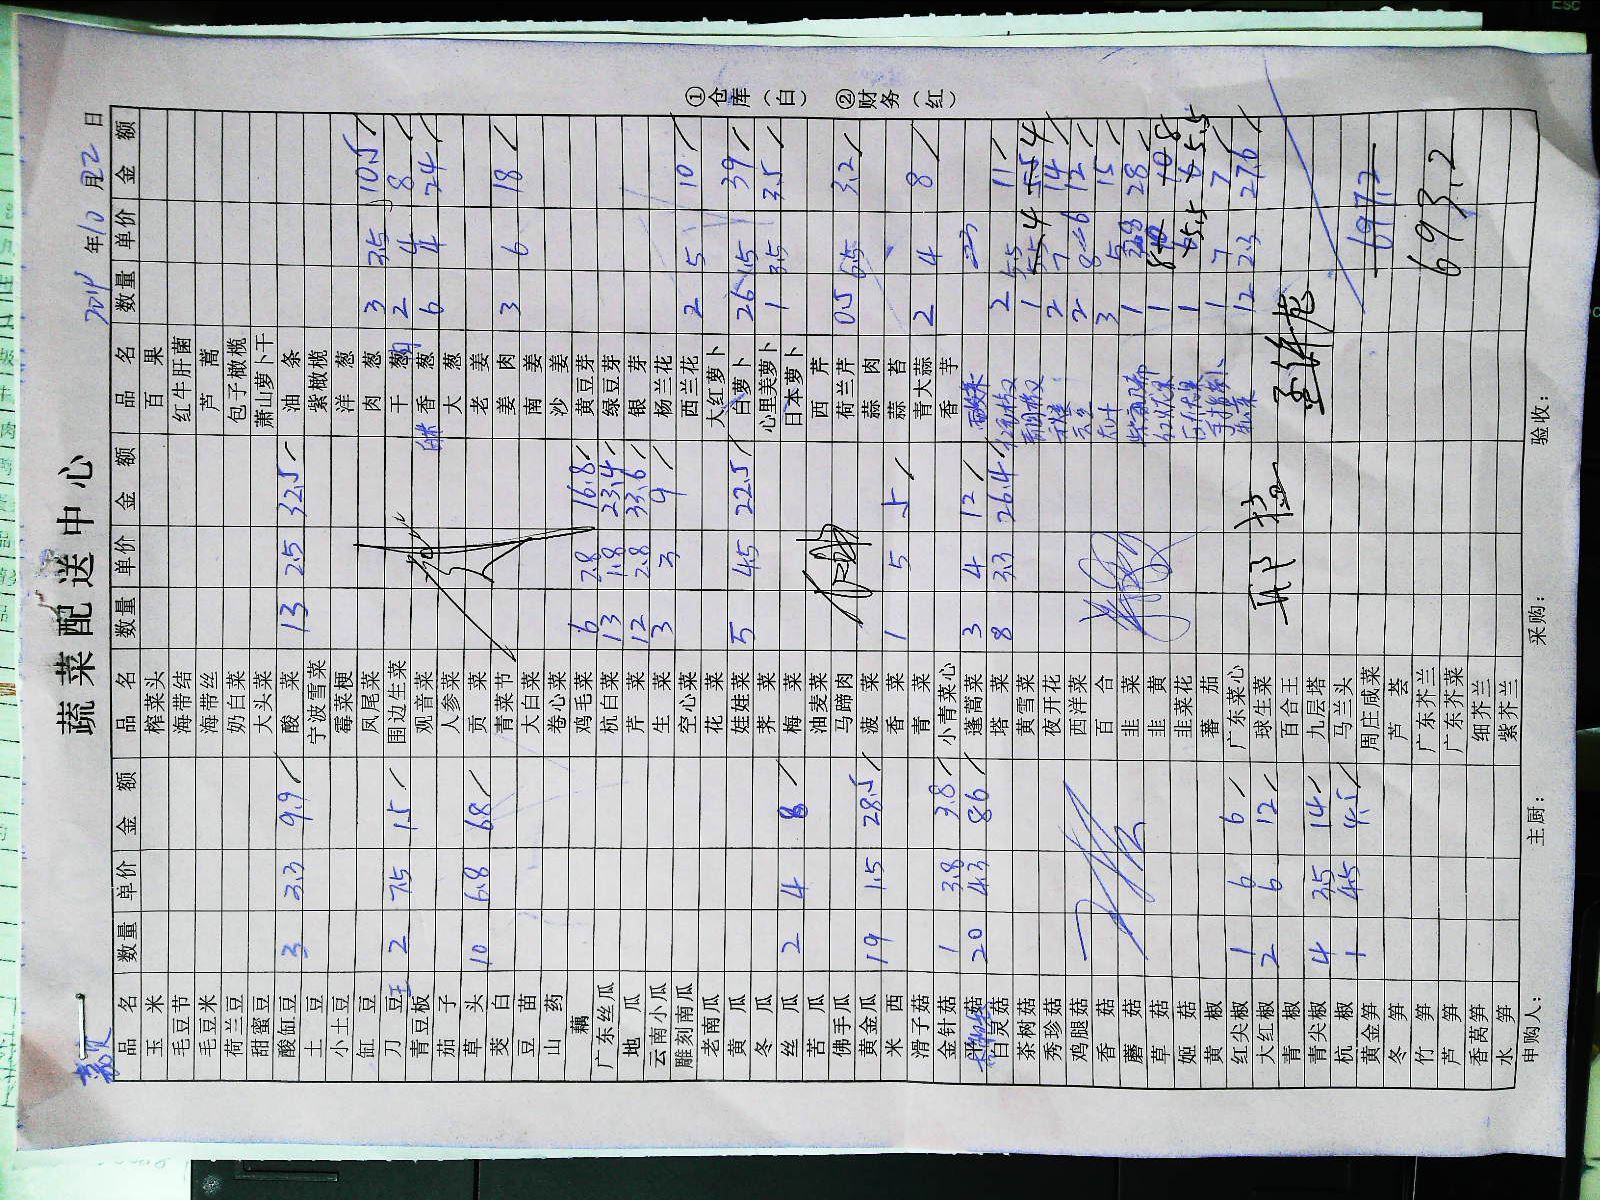 蔬菜配送中心
2014年10月22日
品名 数量 单价 金额 品名 数量 单价 金额 品名 数量 单价 金额
玉米 榨菜头 百果
毛豆节 海带结 红牛肝菌
毛豆米 海带丝 芦蒿
荷兰豆 奶白菜 包子橄榄
甜蜜豆 大头菜 萧山萝卜干
酸缸豆 3 3.3 9.9 酸菜 13 2.5 32.5 油条
土豆 宁波雪菜 紫橄榄
小土豆 霉菜梗 洋葱
缸豆 凤尾菜 肉葱 3 3.5 10.5
刀豆 2 7.5 15 围边生菜 干葱 2 4 8
青豆板 观音菜 香葱 6 4 24
茄子 人参菜 大葱
草头 10 6.8 68 贡菜 老姜
茭白 青菜节 姜肉 3 6 18
豆苗 大白菜 南姜
山药 卷心菜 沙姜
藕 鸡毛菜 6 2.8 16.8 黄豆芽
广东丝瓜 杭白菜 13 1.8 23.4 绿豆芽
地瓜 芹菜 12 2.8 33.6 银芽
云南小瓜 生菜 3 3 9 杨兰花
雕刻南瓜 空心菜 西兰花 2 5 10
老南瓜 花菜 大红萝卜
黄瓜 娃娃菜 5 4.5 22.5 白萝卜 26 1.5 39
冬瓜 荠菜 心里美萝卜 1 3.5 3.5
丝瓜 2 4 8 梅菜 日本萝卜
苦瓜 油麦菜 西芹
佛手瓜 马蹄肉 荷兰芹 0.5 6.5 3.2
黄金瓜 19 1.5 28.5 菠菜 蒜肉
米西 香菜 1 5 5 蒜苔
滑子菇 青菜 青大蒜 2 4 8
金针菇 1 3.8 3.8 小青菜心 香芋
20 4.3 86 蓬蒿菜 3 4 12
白灵菇 塔菜 8 3.3 26.4 2 5.5 11
茶树菇 黄雪菜 1
秀珍菇 夜开花 2 7 14
鸡腿菇 西洋菜 2 6 12
香菇 百合 3 5 15
蘑菇 韭菜 1 28 28
草菇 韭黄 1
姬菇 韭菜花 1
黄椒 蕃茄 1 7 7
红尖椒 1 6 6 广东菜心 12 23 276
大红椒 2 6 12 球生菜
青椒 百合王
青尖椒 4 3.5 14 九层塔
杭椒 1 4.5 4.5 马兰头
黄金笋 周庄咸菜 697.2
冬笋 芦荟
竹笋 广东芥兰 693.2
芦笋 广东芥菜
香莴笋 细芥兰
水笋 紫芥兰
申购人： 主厨： 采购： 验收：
①仓库（白） ②财务（红）